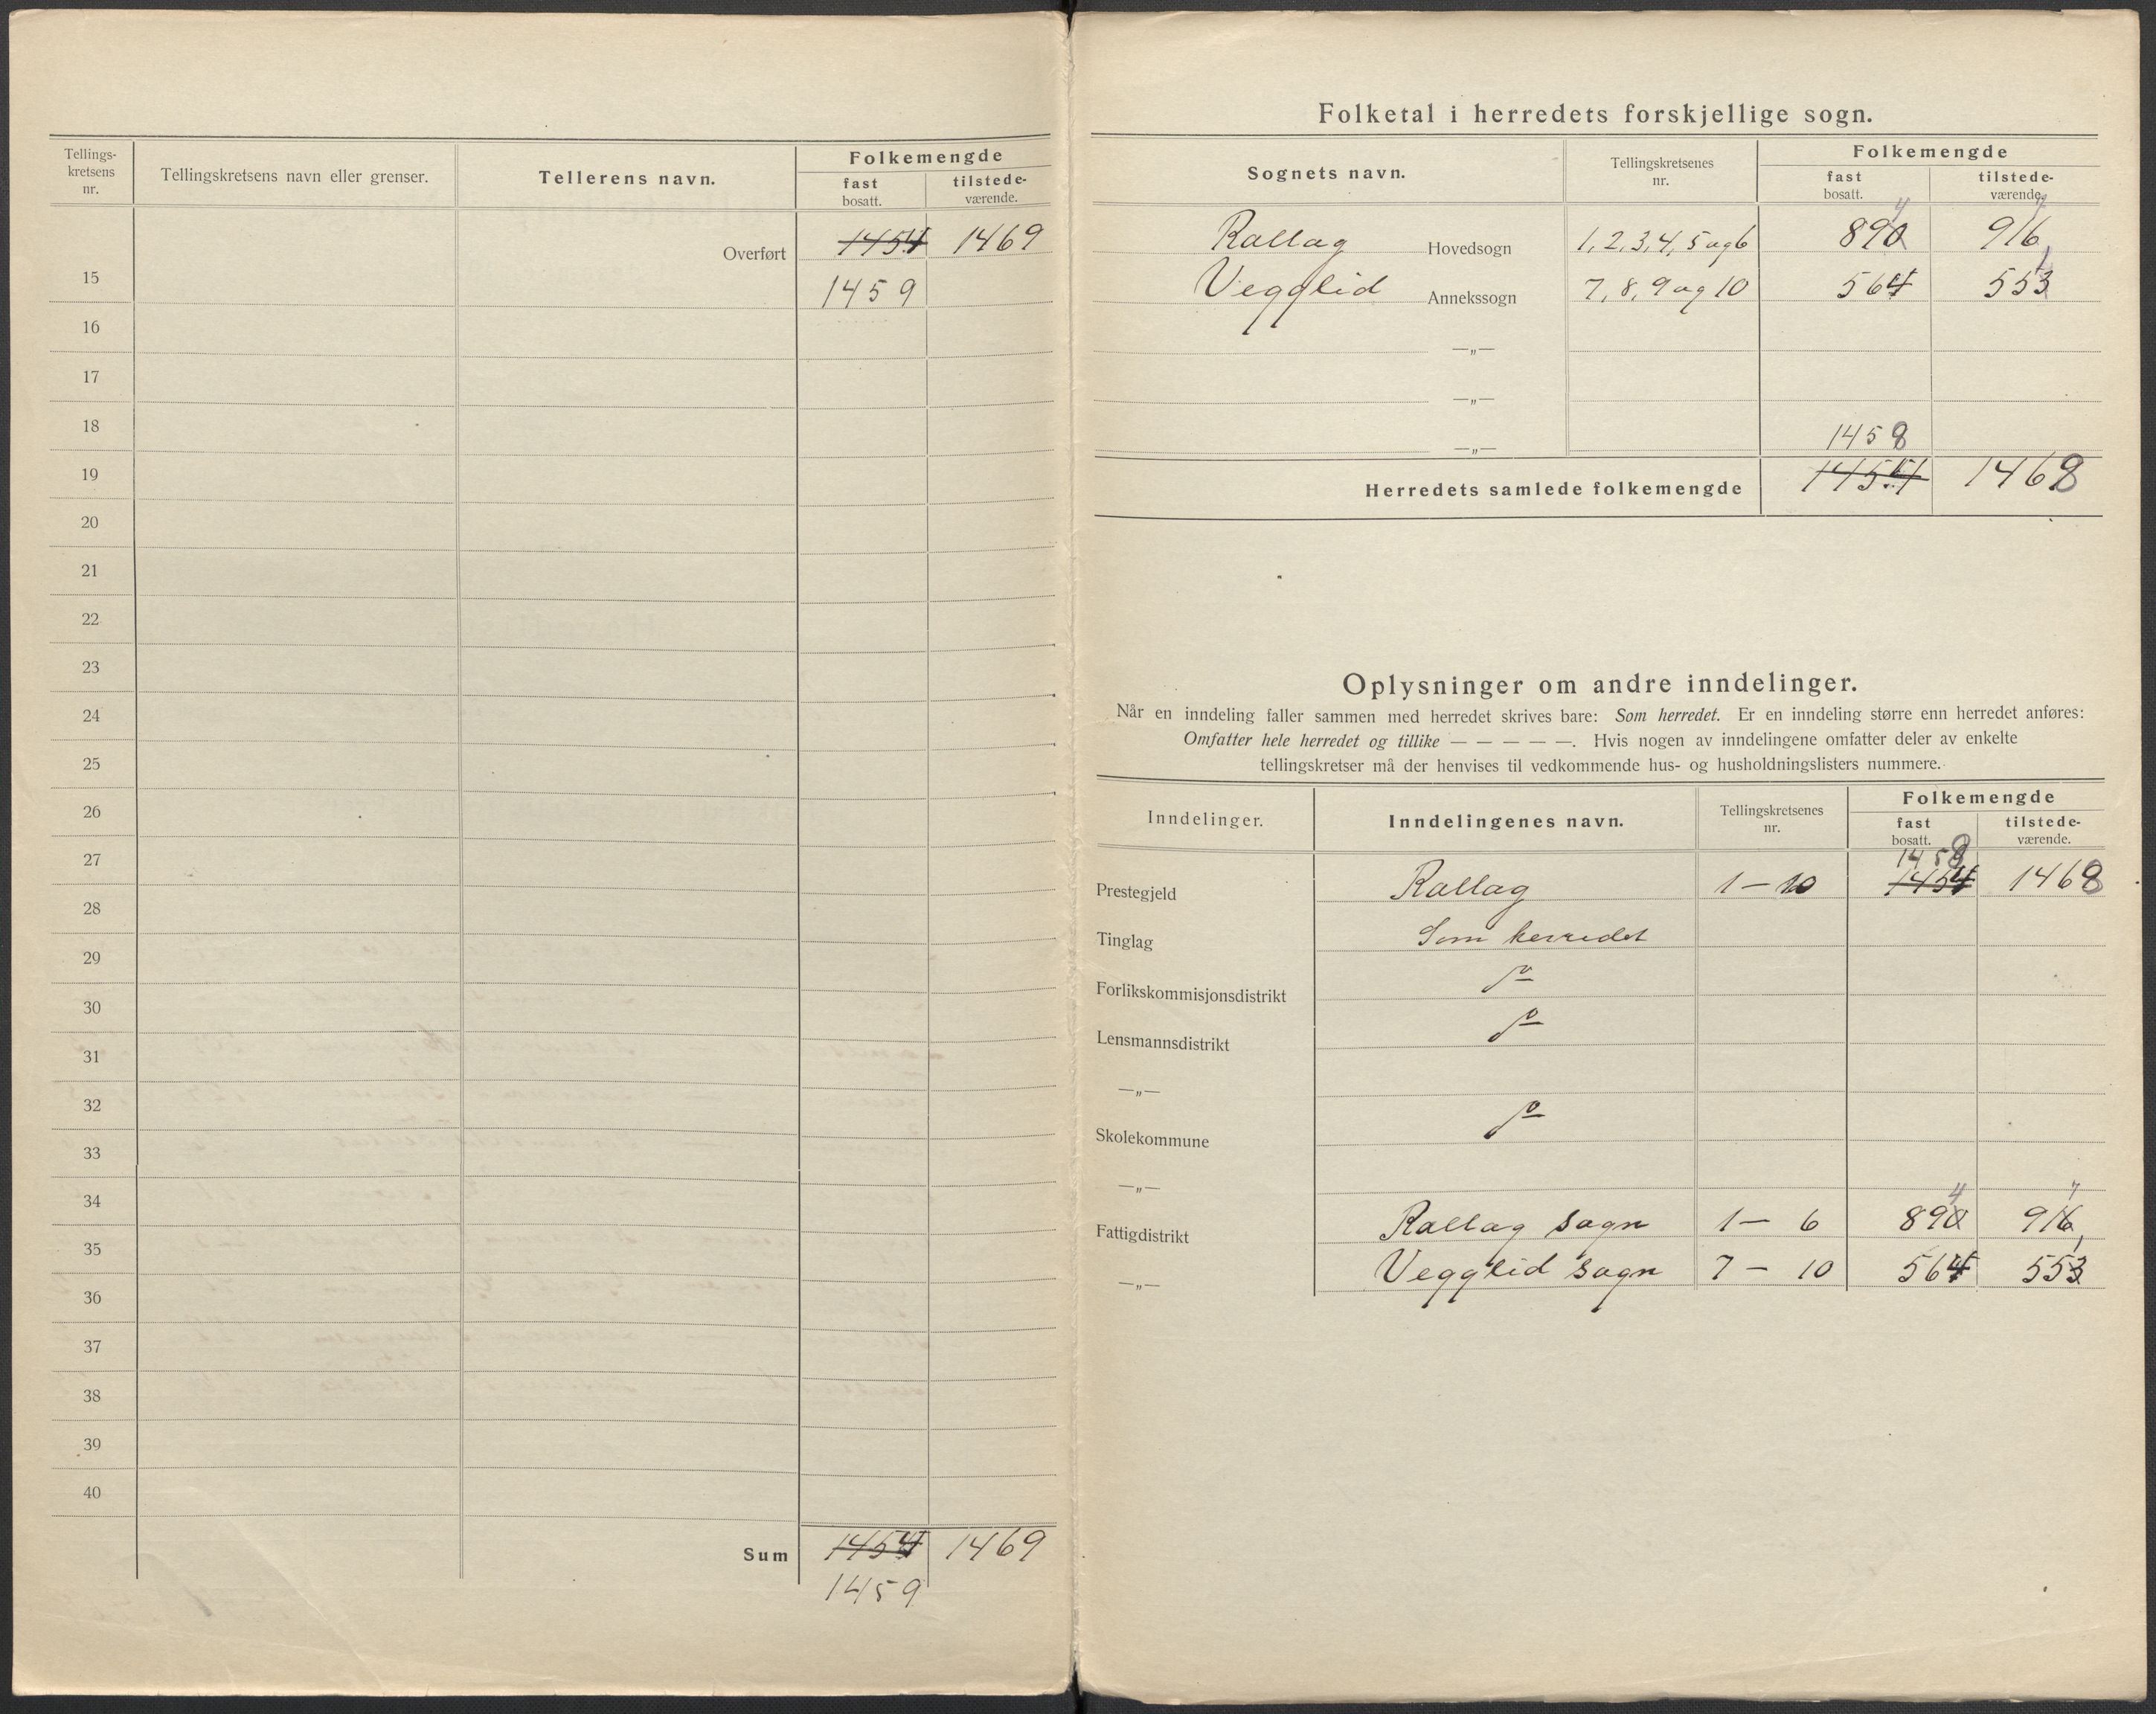 Tellings-
kretsens
nr.
Tellingskretsens navn eller grenser.
Tellerens navn.
Folkemengde
fast
bosatt.
tilstede-
værende.
Overført 1454 1469
15 1459
16
17
18
19
20
21
22
23
24
25
26
27
28
29
30
31
32
33
34
35
36
37
38
39
40
Sum 1454 1469
1459
Folketal i herredets forskjellige sogn.
Sognets navn.
Tellingskretsenes
nr.
Folkemengde
fast
bosatt.
tilstede-
værende.
4 7
Rollag Hovedsogn 1, 2, 3, 4, 5 og 6 890 916
1
Vegglid Annekssogn 7, 8, 9 og 10 564 553
—„—
—„—
1458
—„—
Herredets samlede folkemengde 1454 1468
Oplysninger om andre inndelinger.
Når en inndeling faller sammen med herredet skrives bare: Som herredet. Er en inndeling større enn herredet anføres:
Omfatter hele herredet og tillike — — — — —. Hvis nogen av inndelingene omfatter deler av enkelte
tellingskretser må der henvises til vedkommende hus- og husholdningslisters nummere.
Inndelinger.
Inndelingenes navn.
Tellingskretsenes
nr.
Folkemengde
fast
bosatt.
tilstede-
værende.
1458
Prestegjeld Rollag 1 — 10 1454 1468
Tinglag Som herredet
Forlikskommisjonsdistrikt
Lensmannsdistrikt
—„—
Skolekommune
—„—
4 7
Fattigdistrikt Rollag sogn 1 — 6 890 916
1
—„— Vegglid sogn 7 — 10 564 553